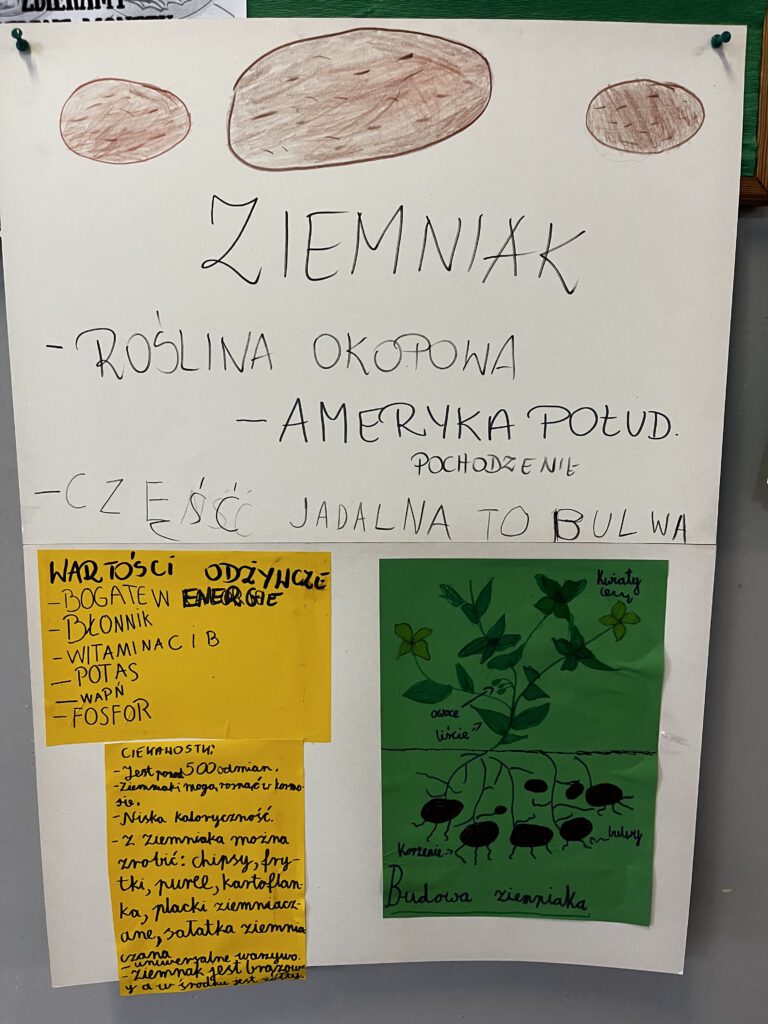 ZBIERAMY
ZIEMNIAK
- ROŚLINA OKOPOWA
- AMERYKA POŁUD.
POCHODZENIE
- CZĘŚĆ JADALNA TO BULWA
WARTOŚCI ODŻYWCZE
- BOGATE W ENERGIE
- BŁONNIK
- WITAMINA C I B
- POTAS
- WAPŃ
- FOSFOR
CIEKAWOSTKI
- Jest ponad 500 odmian.
- Ziemniaki mogą rosnąć w kosmo-
sie.
- Niska kaloryczność.
- Z Ziemniaka można
zrobić: chipsy, fry-
tki, puree, kartoflan-
ka, placki ziemniacz-
ane, sałatka ziemnia
czana
- uniwersalne warzywo.
- Ziemnak jest brązow
y a w środku jest żółty
Kwiaty
owoce
liście
bulwy
Korzenie
Budowa ziemniaka